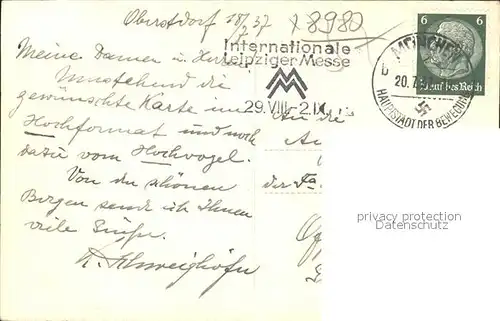 Oberstdorf 18/7 37
x 8980
Internationale
Leipziger Messe
29.VIII.-2.IX.
6 6
Deutsches Reich
MÜNCHEN
b
20.7.37
HAUPTSTADT DER BEWEGUNG
Meine Damen u. Herren
Umstehend die
gewünschte Karte im
Hochformat und noch
dazu vom Hochvogel.
Von den schönen
Bergen sende ich Ihnen
viele Grüße.
An die
der Fa.
privacy protection
Datenschutz